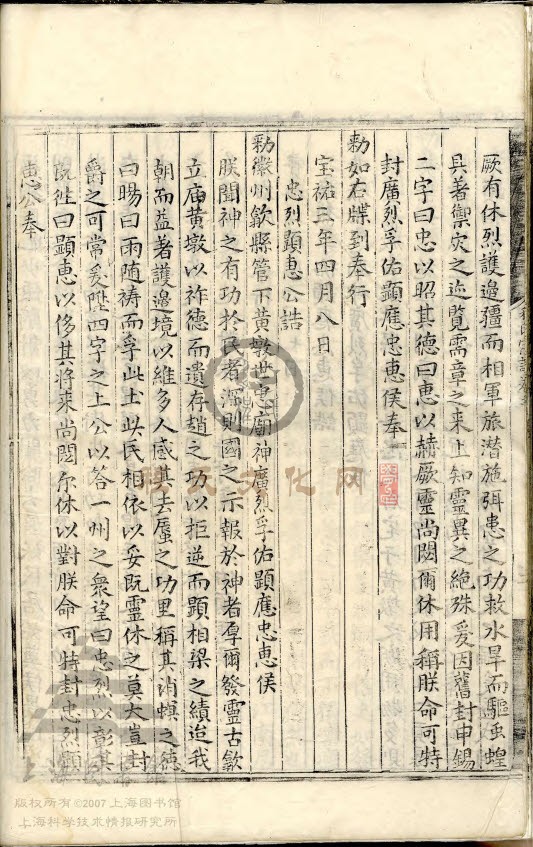 厥有休烈護邊疆而相軍旅潛施弭患之功救水旱而驅虫蝗
具著禦灾之迹覽需章之来上知靈異之絶殊爰因舊封申錫
二字曰忠以昭其德曰惠以赫厥靈尚閎爾休用稱朕命可特
封廣烈孚佑顯應忠惠侯奉
勑如右牒到奉行
宝祐三年四月八日
忠烈顯惠公誥
勑徽州歙縣管下黄墩世忠廟神廣烈孚佑顯應忠惠侯
朕聞神之有功於民者深則國之示報於神者厚爾發靈古歙
立庙黄墩以祚德而遺存趙之功以拒逆而顯相梁之績迨我
朝而益著護邊境以維多人感其去蜃之功里稱其消螟之德
曰暘曰雨随祷而孚此土此民相依以妥既靈休之莫大豈封
爵之可常爰陞四字之上公以答一州之衆望曰忠烈以彰其
既徃曰顯惠以侈其將来尚閎尔休以對朕命可特封忠烈顯
惠公奉
程氏文化网
版权所有©2007 上海图书馆
上海科学技术情报研究所